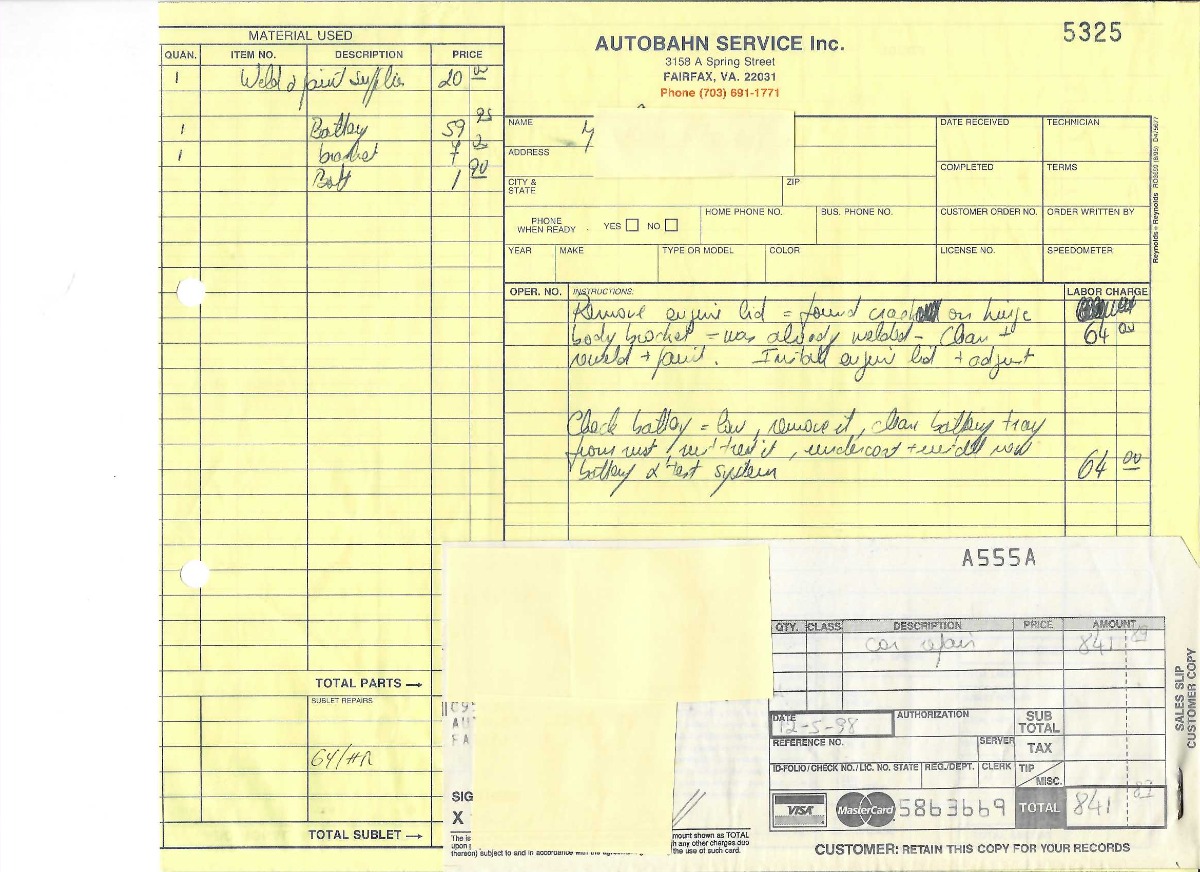 5325
AUTOBAHN SERVICE Inc.
3158 A Spring Street
FAIRFAX, VA. 22031
Phone (703) 691-1771
MATERIAL USED
QUAN. ITEM NO. DESCRIPTION PRICE
1 Weld & paint supplies 20 00
1 Battery 59 95
1 bracket 7
Bolt 1 90
TOTAL PARTS →
SUBLET REPAIRS
64/HR
TOTAL SUBLET →
NAME
DATE RECEIVED TECHNICIAN
ADDRESS
COMPLETED TERMS
CITY & STATE ZIP
PHONE WHEN READY YES NO HOME PHONE NO. BUS. PHONE NO. CUSTOMER ORDER NO. ORDER WRITTEN BY
YEAR MAKE TYPE OR MODEL COLOR LICENSE NO. SPEEDOMETER
OPER. NO. INSTRUCTIONS: LABOR CHARGE
Remove engine lid = found crack on hinge
body bracket = was already welded - Clean + 64 00
reweld + paint. Install engine lid + adjust
Check battery = low, remove it, clean battery tray
from rust, treat it, undercoat + install new
battery & test system 64 00
A555A
QTY. CLASS DESCRIPTION PRICE AMOUNT
car repair 841 89
DATE 12-5-98 AUTHORIZATION SUB TOTAL
REFERENCE NO. SERVER TAX
ID-FOLIO/CHECK NO./LIC. NO. STATE REG./DEPT. CLERK TIP/MISC.
VISA MasterCard 5863669 TOTAL 841 89
CUSTOMER: RETAIN THIS COPY FOR YOUR RECORDS
SALES SLIP
CUSTOMER COPY
SIG
X
The is
upon
thereon) subject to and in accordance with the
mount shown as TOTAL
h any other charges due
the use of such card.